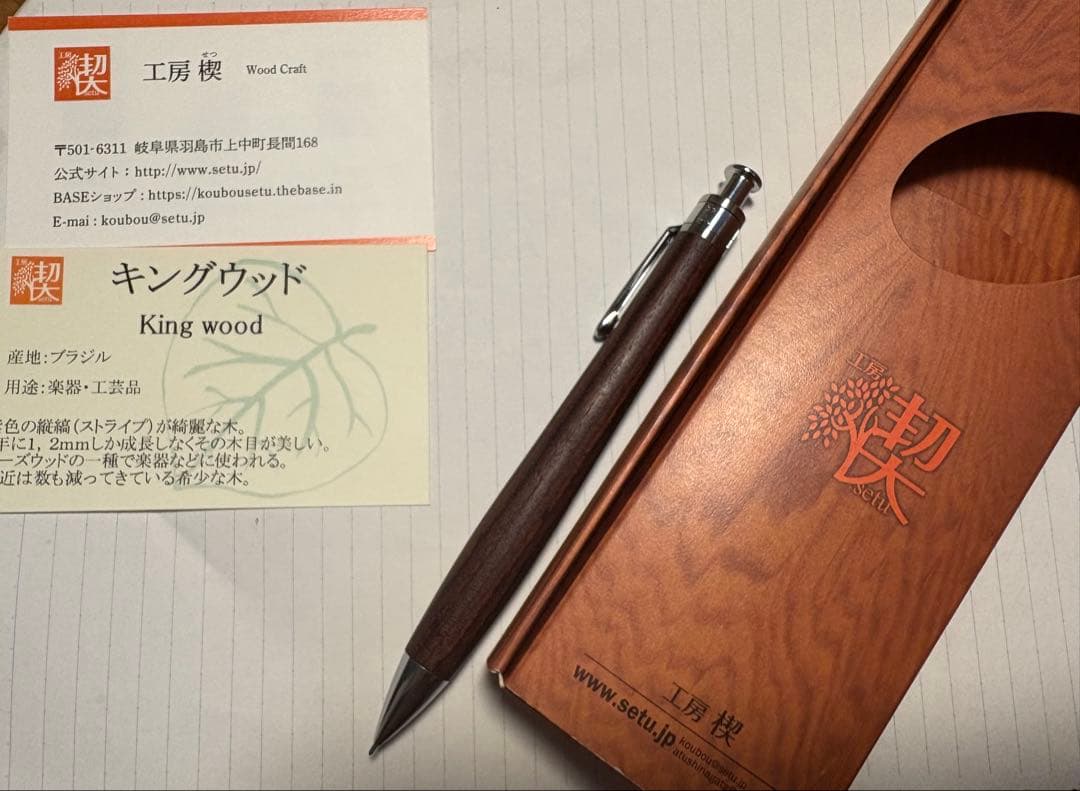 工房
楔
setu
せつ
工房 楔 Wood Craft
〒501-6311 岐阜県羽島市上中町長間168
公式サイト：http://www.setu.jp/
BASEショップ：https://koubousetu.thebase.in
E-mai : koubou@setu.jp
工房
楔
setu
キングウッド
King wood
産地：ブラジル
用途：楽器・工芸品
色の縦縞（ストライプ）が綺麗な木。
年に1，2mmしか成長しなくその木目が美しい。
ーズウッドの一種で楽器などに使われる。
近は数も減ってきている希少な木。
工房
楔
setu
工房 楔
www.setu.jp
koubou@setu.jp